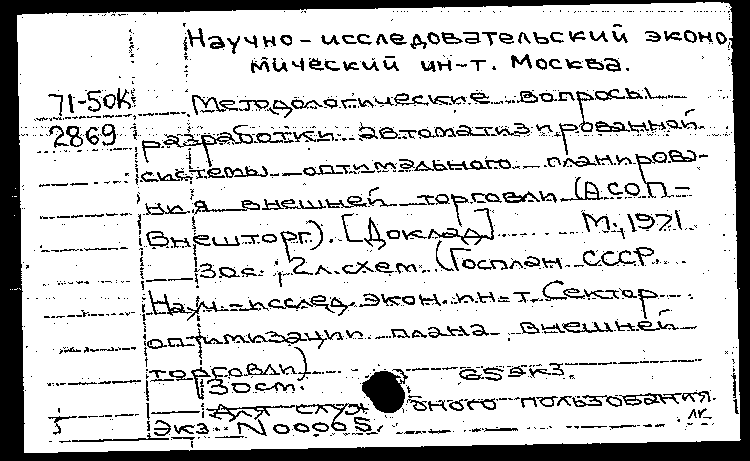 Научно-исследовательский эконо-
мический ин-т. Москва.
71-50К Методологические вопросы
2869 разработки автоматизированной
системы оптимального планирова-
ния внешней торговли (АСОП-
Внешторг). [Доклад]. М., 1971
30с.; 2л. схем. (Госплан СССР.
Науч.-исслед. экон. ин-т. Сектор
оптимизации плана внешней
торговли)
30ст. 65экз.
Для служ ного пользования.
Экз. N 00005.